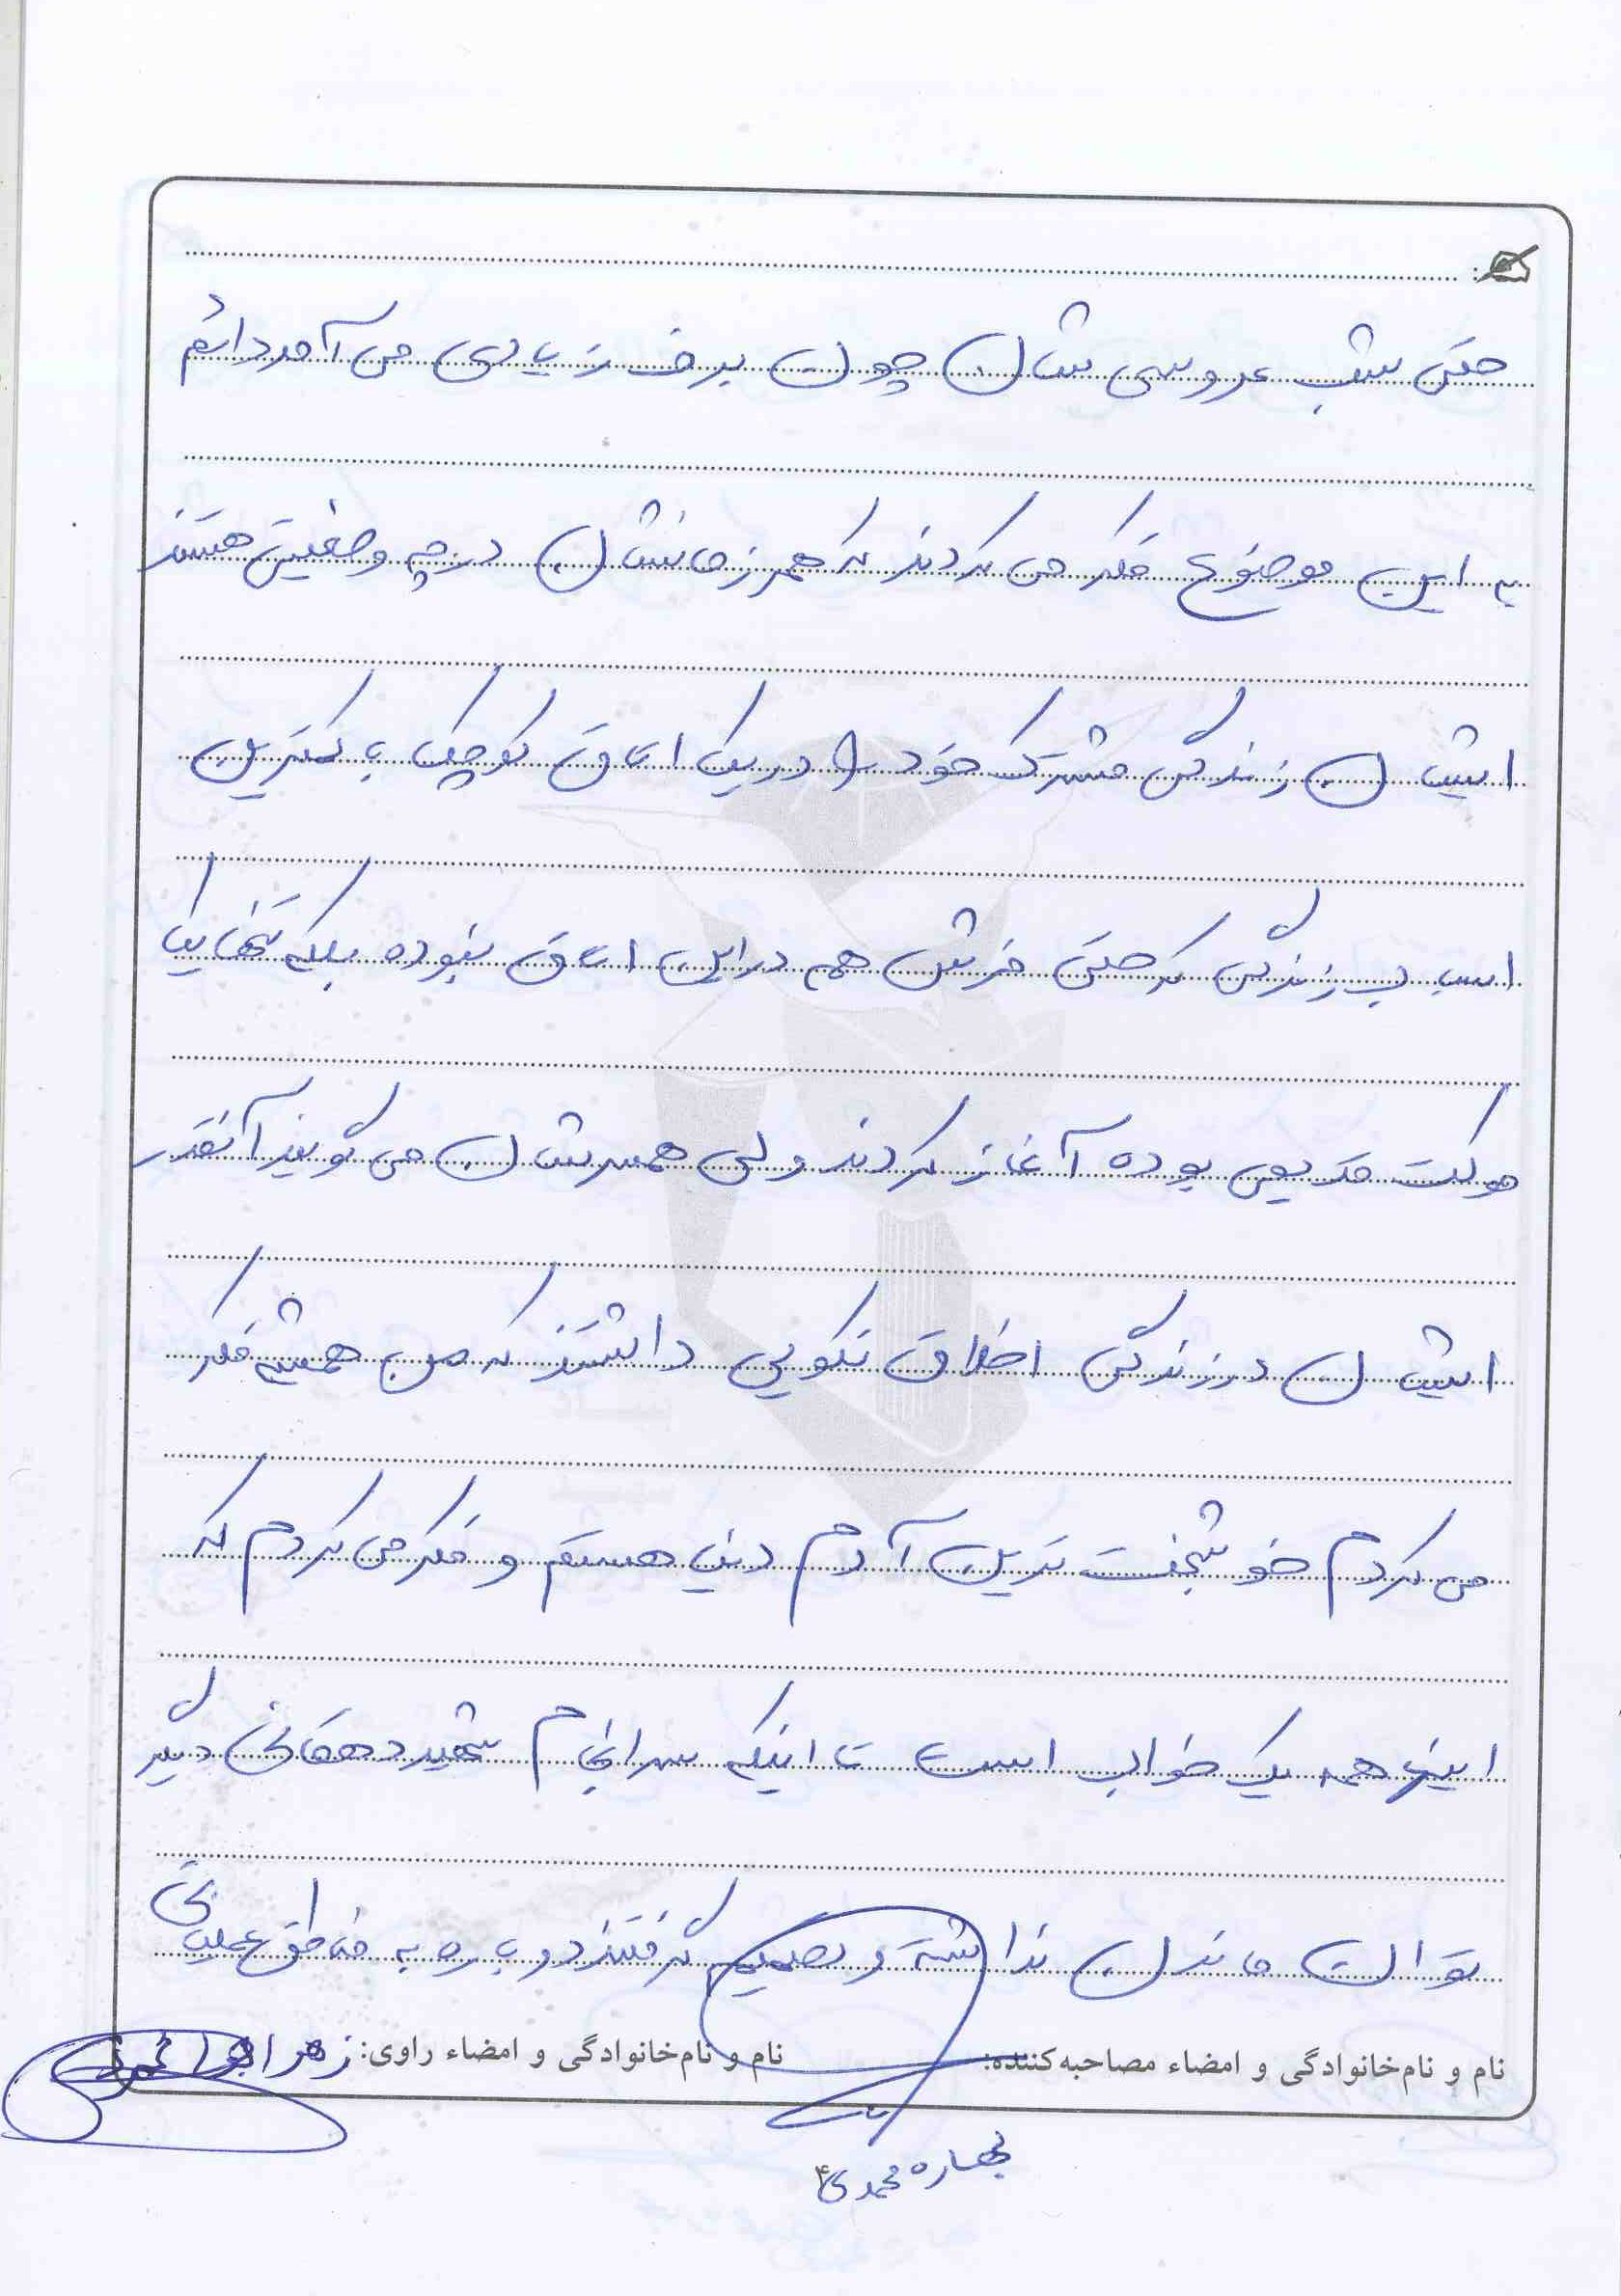 حتی شب عروسی شان چون برف زیادی می آمد دائم
به این موضوع فکر می کردند که همرزمانشان در چه وضعیتی هستند
ایشان زندگی مشترک خود را در یک اتاق کوچک با کمترین
اسباب زندگی که حتی فرش هم در این اتاق نبوده بلکه تنها یک
موکت قدیمی بوده آغاز کردند ولی همسرشان می گویند آنقدر
ایشان در زندگی اخلاق نیکویی داشتند که من همیشه فکر
می کردم خوشبخت ترین آدم دنیا هستم و فکر می کردم که
اینها همه یک خواب است تا اینکه سرانجام شهید دهقانی دیگر
توان ماندن نداشته و تصمیم گرفتند دوباره به مناطق عملیاتی
نام و نام‌خانوادگی و امضاء مصاحبه‌کننده: نام و نام‌خانوادگی و امضاء راوی: زهرا
بهاره محمدی